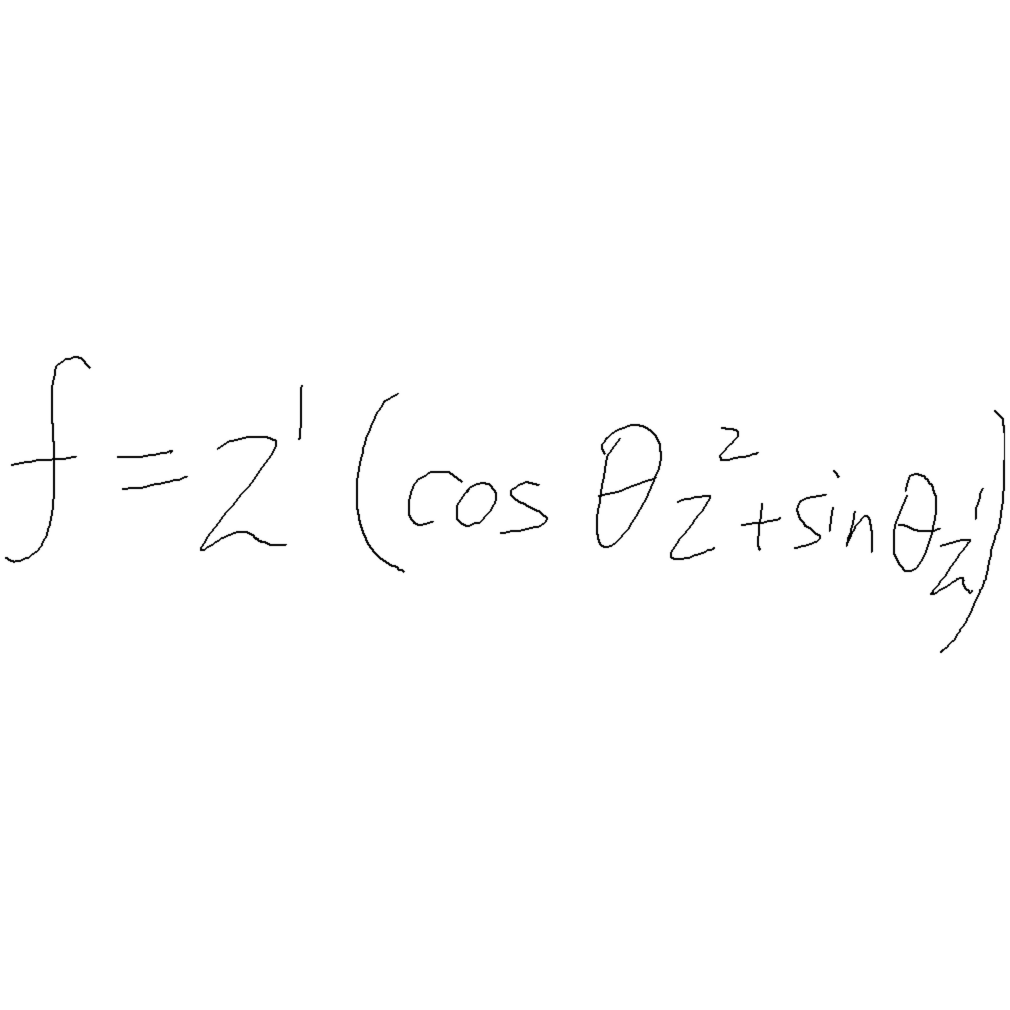 f = z¹ (cos θ z² + sin θ z¹)